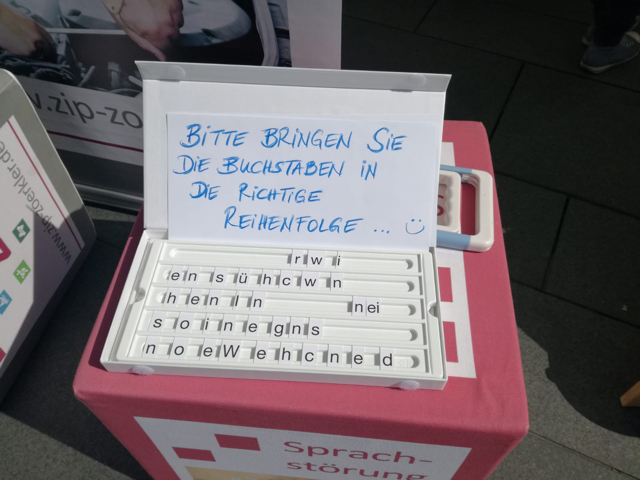 www.zip-zoerkler.de
BITTE BRINGEN SIE
DIE BUCHSTABEN IN
DIE RICHTIGE
REIHENFOLGE ... ☺
rwi
ensühcwn
henIn nei
soinegns
noeWehcned
Sprach-
störung